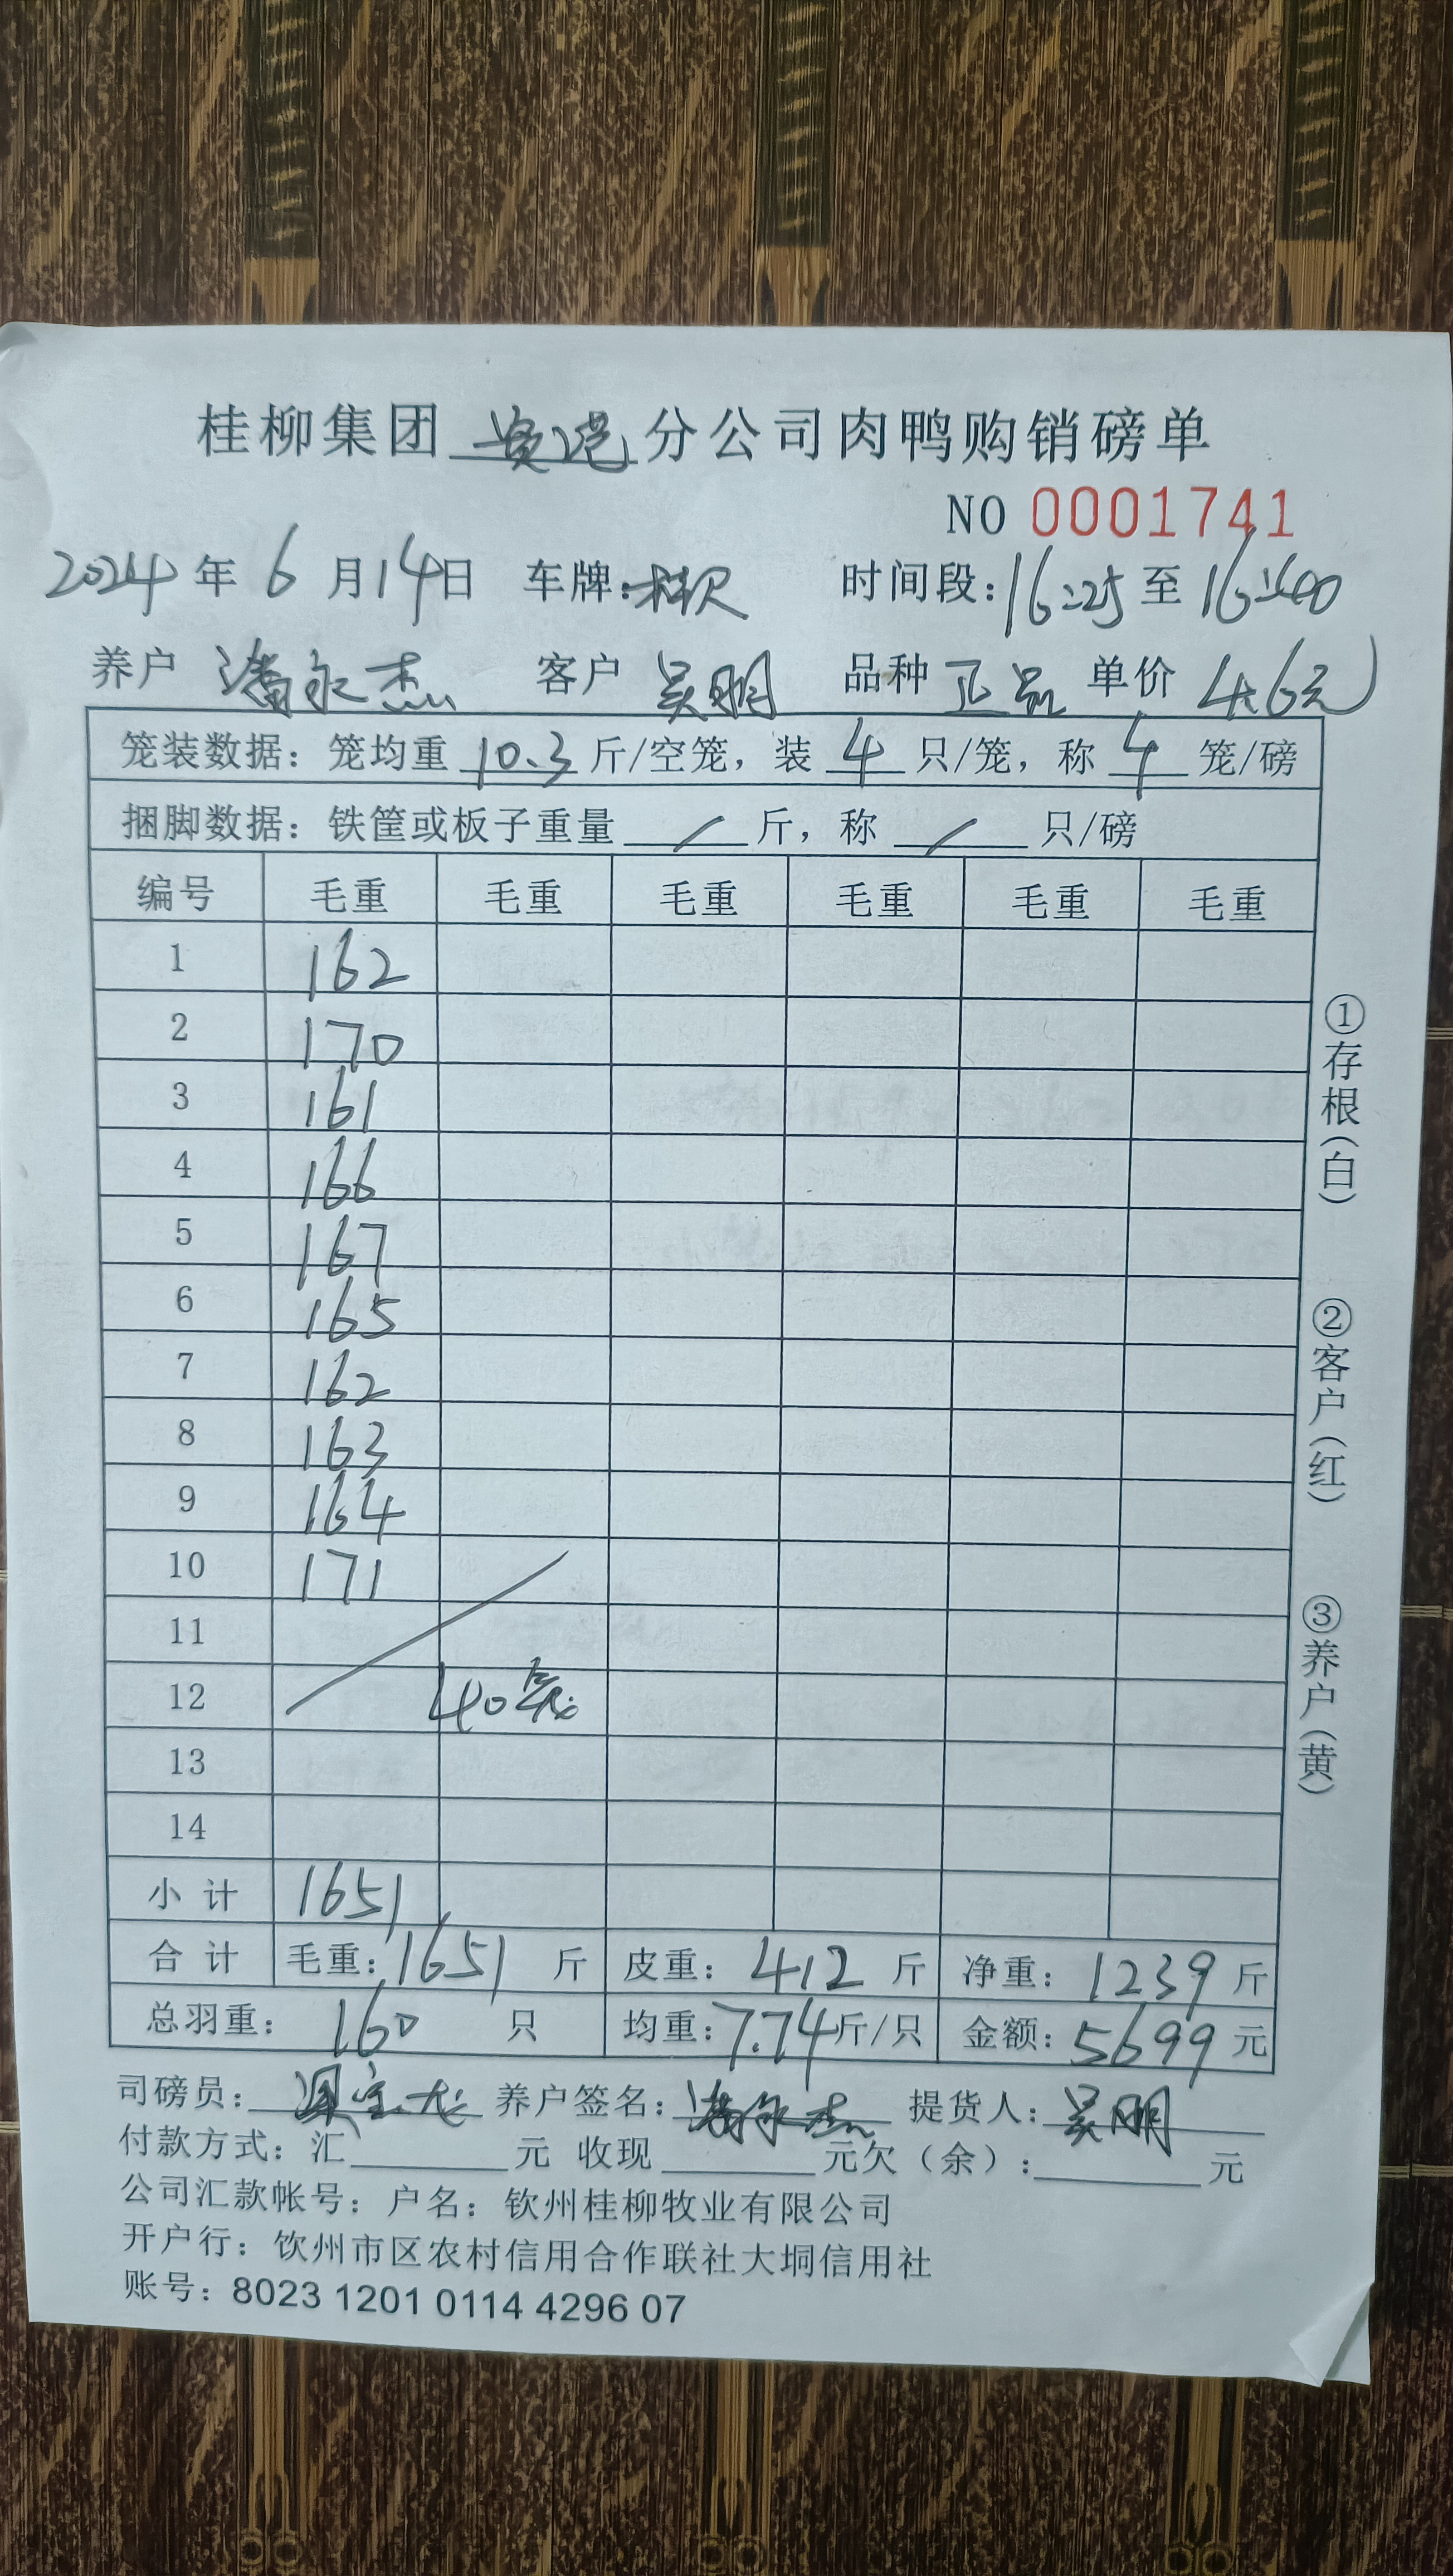 桂柳集团 贵港 分公司肉鸭购销磅单
NO 0001741
2024 年 6 月 14 日 车牌: 时间段: 16:25 至 16:40
养户 潘永杰 客户 吴明 品种 正品 单价 4.6元
笼装数据: 笼均重 10.3 斤/空笼, 装 4 只/笼, 称 4 笼/磅
捆脚数据: 铁筐或板子重量 / 斤, 称 / 只/磅
编号 毛重 毛重 毛重 毛重 毛重 毛重
1 162
2 170
3 161
4 166
5 167
6 165
7 162
8 163
9 164
10 171
11
12 40笼
13
14
小计 1651
合计 毛重: 1651 斤 皮重: 412 斤 净重: 1239 斤
总羽重: 160 只 均重: 7.74 斤/只 金额: 5699 元
司磅员: 养户签名: 潘永杰 提货人: 吴明
付款方式: 汇 元 收现 元欠（余）: 元
公司汇款帐号: 户名: 钦州桂柳牧业有限公司
开户行: 饮州市区农村信用合作联社大垌信用社
账号: 8023 1201 0114 4296 07
①存根(白)
②客户(红)
③养户(黄)